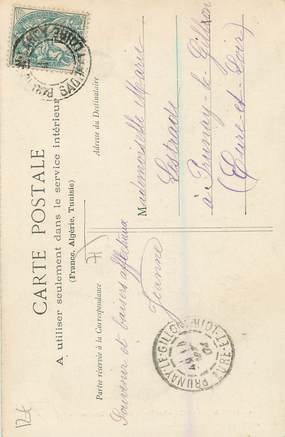 CARTE POSTALE
A utiliser seulement dans le service intérieur
(France, Algérie, Tunisie)
Partie réservée à la Correspondance
Adresse du Destinataire
Souvenir et baisers affectueux
Jeanne
Mademoiselle Marie
Lestrade
à Prunay-le-Gillon
(Eure-et-Loir)
PRUNAY-LE-GILLON
EURE-ET-LOIR
04
12€